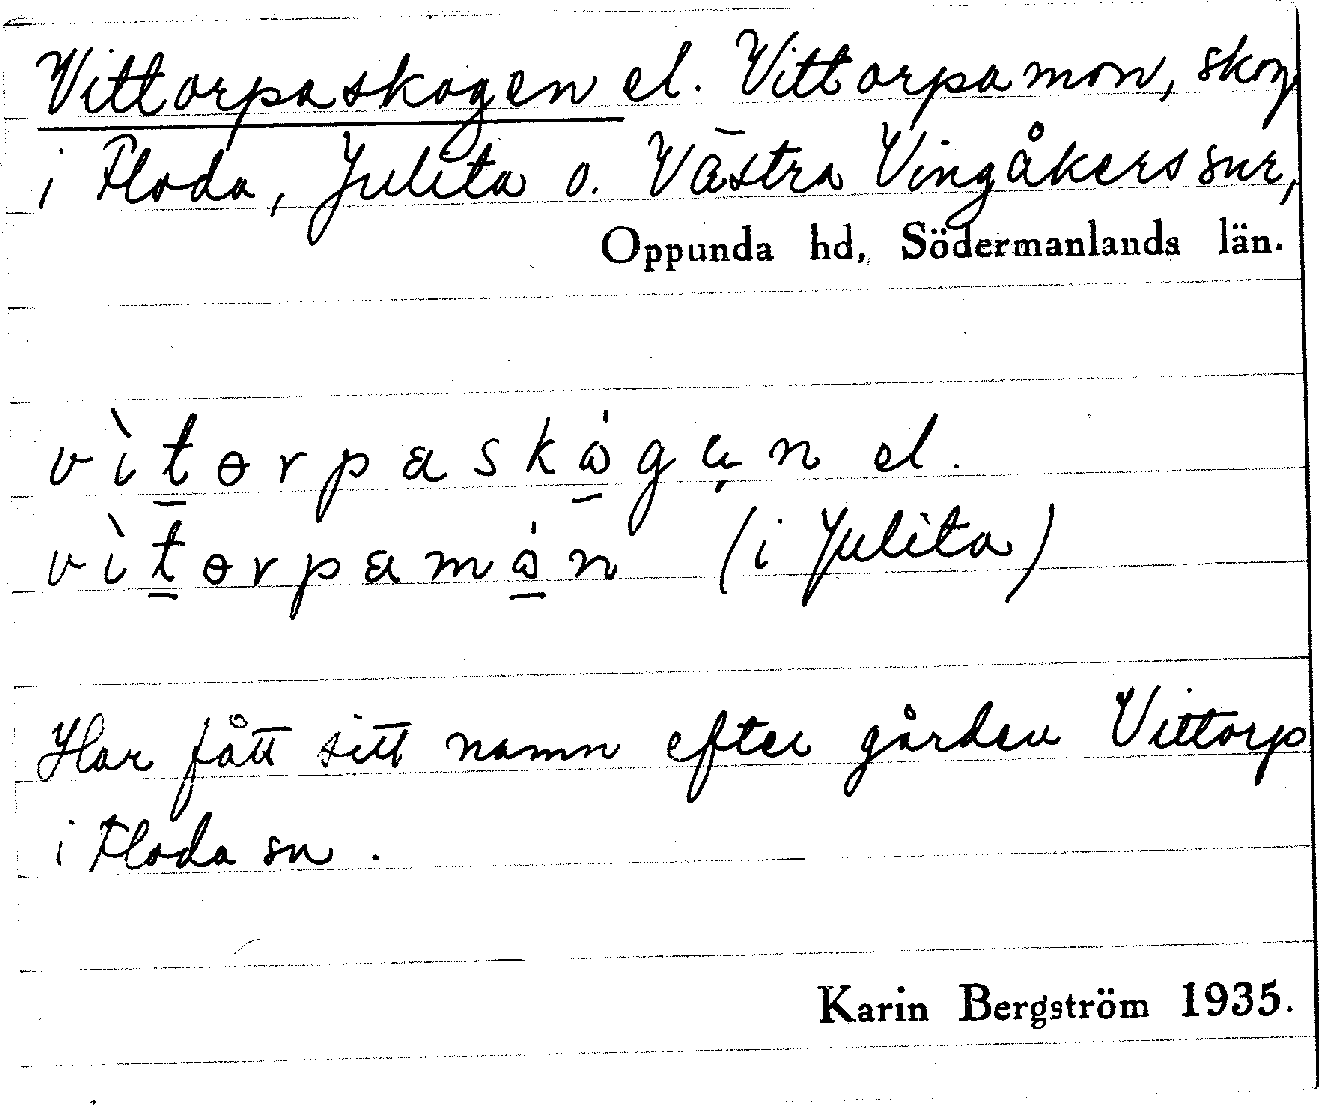 Vittorpaskogen el. Vittorpamon, skog
i Floda, Julita o. Västra Vingåkers snr,
Oppunda hd, Södermanlands län.
vìt̲ɵrpask̀ω̲gen el.
vìt̲ɵrpamὼ̲n (i Julita)
Har fått sitt namn efter gården Vittorp
i Floda sn.
Karin Bergström 1935.